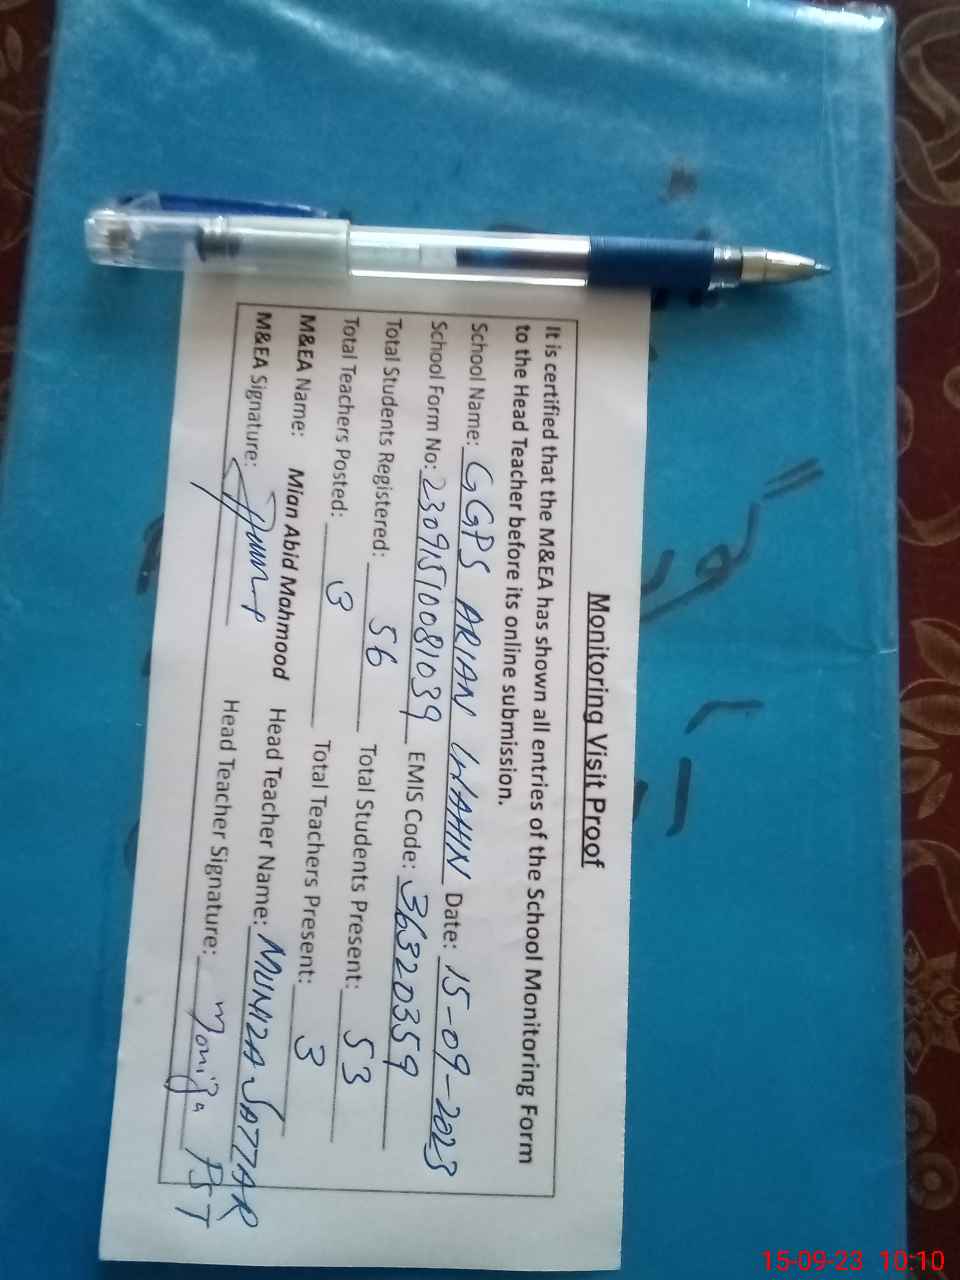 Monitoring Visit Proof
It is certified that the M&EA has shown all entries of the School Monitoring Form
to the Head Teacher before its online submission.
School Name: GGPS ARIAN WAHIN Date: 15-09-2023
School Form No: 23091510081039 EMIS Code: 36320359
Total Students Registered: 56 Total Students Present: 53
Total Teachers Posted: 3 Total Teachers Present: 3
M&EA Name: Mian Abid Mahmood Head Teacher Name: MUNIZA SATTAR
M&EA Signature: Head Teacher Signature: Moniza PST
15-09-23 10:10